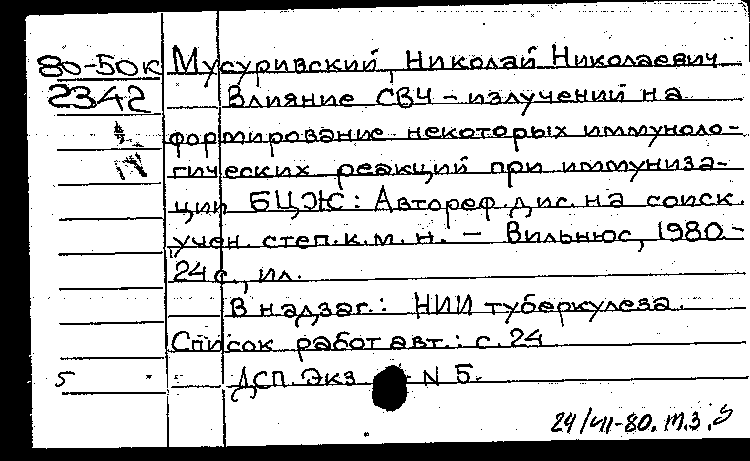 80-50к Мусуривский, Николай Николаевич
2342 Влияние СВЧ-излучений на
формирование некоторых иммуноло-
гических реакций при иммуниза-
ции БЦЖ: Автореф. дис. на соиск.
учен. степ. к.м.н. - Вильнюс, 1980.-
24с., ил.
В надзаг.: НИИ туберкулеза.
Список работ авт.: с. 24
5 ДСП. Экз N 5.
24/VII-80. т.3.